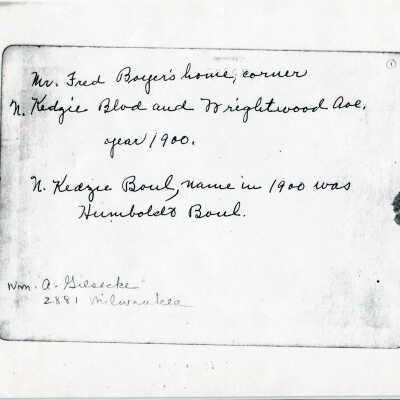 Mr. Fred Boyer's home, corner
N. Kedzie Blvd and Wrightwood Ave.
year 1900.
N. Kedzie Boul, name in 1900 was
Humboldt Boul.
Wm. A. Giesecke
2881 Milwaukee
1